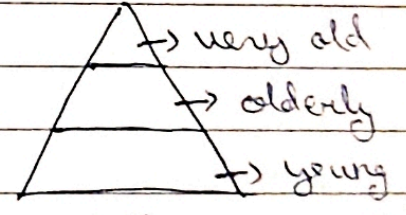 very old
olderly
young